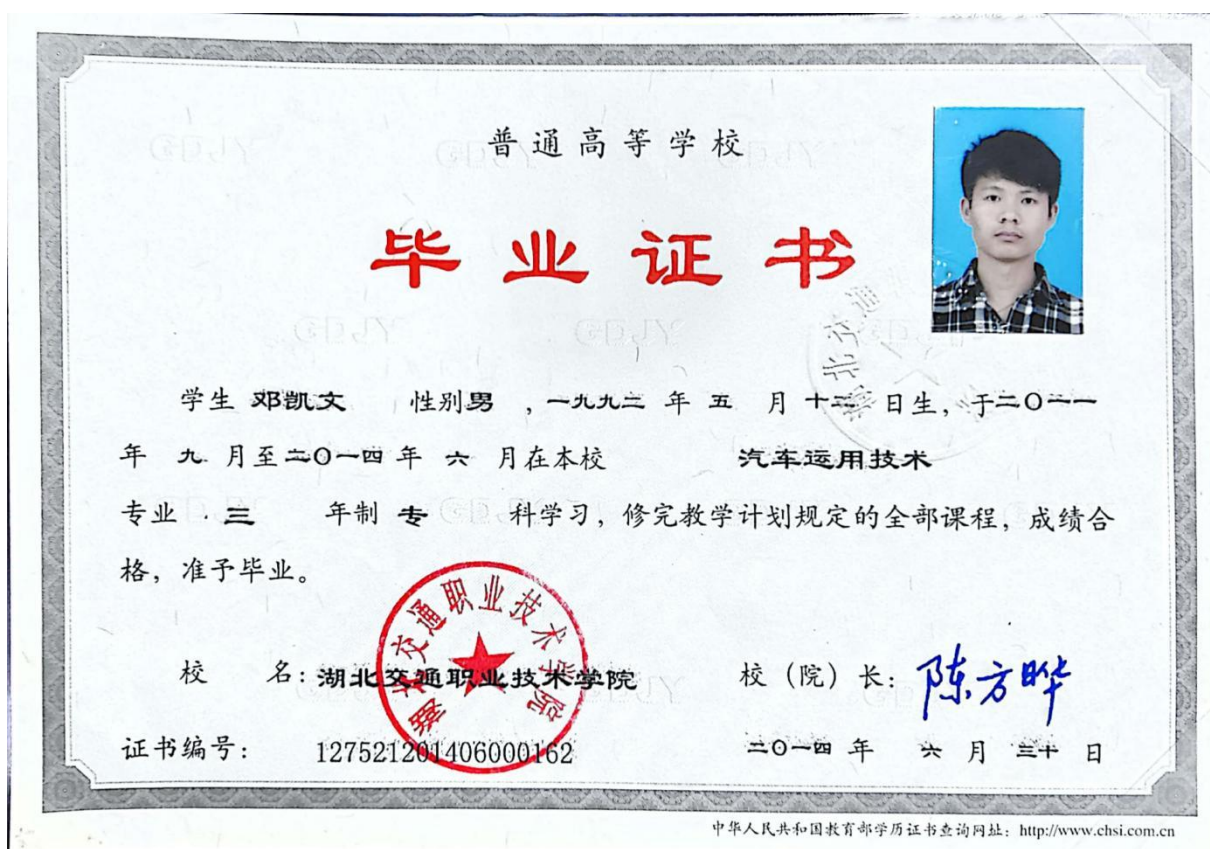 普通高等学校
毕业证书
学生 邓凯文 性别 男 ，一九九二 年 五 月 十二 日生，于二〇一一
年 九 月至二〇一四年 六 月在本校 汽车运用技术
专业 三 年制 专 科学习，修完教学计划规定的全部课程，成绩合
格，准予毕业。
湖北交通职业技术学院
校 名：湖北交通职业技术学院 校（院）长：陈方晔
证书编号： 127521201406000162 二〇一四 年 六 月 三十 日
中华人民共和国教育部学历证书查询网址：http://www.chsi.com.cn